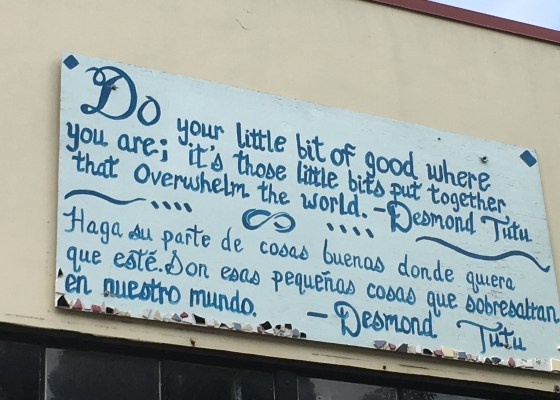 Do your little bit of good where
you are; it's those little bits put together
that Overwhelm the world. -Desmond Tutu
Haga su parte de cosas buenas donde quiera
que esté. Son esas pequeñas cosas que sobresaltan
en nuestro mundo. - Desmond Tutu